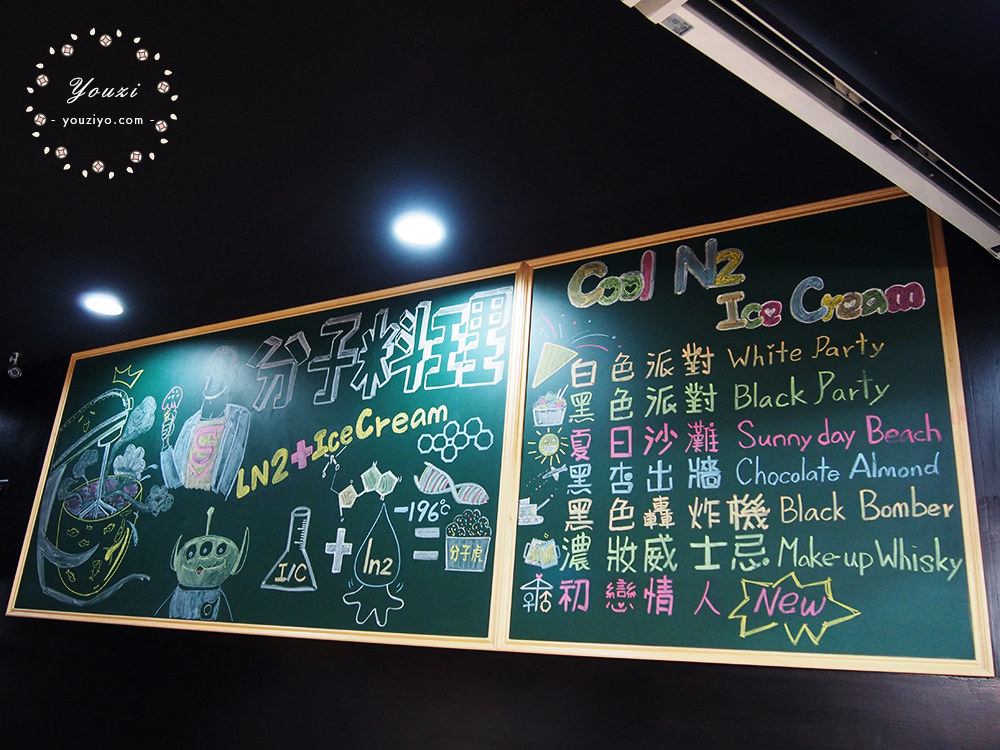 Youzi
- youziyo.com -
分子料理
LN2+Ice Cream
-196°C
I/C
+
ln2
=
分子虎
Cool N2
Ice Cream
白色派對 White Party
黑色派對 Black Party
夏日沙灘 Sunny day Beach
黑杏出牆 Chocolate Almond
黑色轟炸機 Black Bomber
濃妝威士忌 Make-up Whisky
初戀情人 New